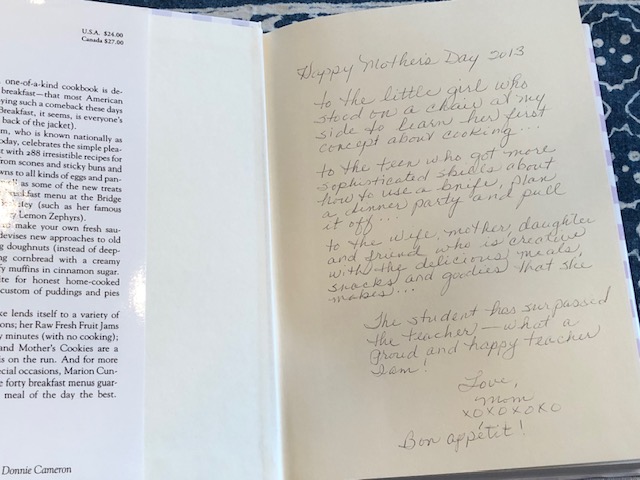 U.S.A. $24.00
Canada $27.00
one-of-a-kind cookbook is de-
breakfast—that most American
ying such a comeback these days
Breakfast, it seems, is everyone's
back of the jacket).
m, who is known nationally as
oday, celebrates the simple plea-
t with 288 irresistible recipes for
from scones and sticky buns and
wns to all kinds of eggs and pan-
as some of the new treats
fast menu at the Bridge
(such as her famous
Lemon Zephyrs).
make your own fresh sau-
devises new approaches to old
g doughnuts (instead of deep-
ng cornbread with a creamy
fy muffins in cinnamon sugar.
ite for honest home-cooked
custom of puddings and pies
ke lends itself to a variety of
ons; her Raw Fresh Fruit Jams
y minutes (with no cooking);
and Mother's Cookies are a
is on the run. And for more
ecial occasions, Marion Cun-
e forty breakfast menus guar-
meal of the day the best.
Donnie Cameron
Happy Mother's Day 2013
to the little girl who
stood on a chair at my
side to learn her first
concept about cooking...
to the teen who got more
sophisticated skills about
how to use a knife, plan
a dinner party and pull
it off...
to the wife, mother, daughter
and friend who is creative
with the delicious meals,
snacks and goodies that she
makes...
The student has surpassed
the teacher — what a
proud and happy teacher
I am!
Love,
Mom
xoxoxoxo
Bon appétit!